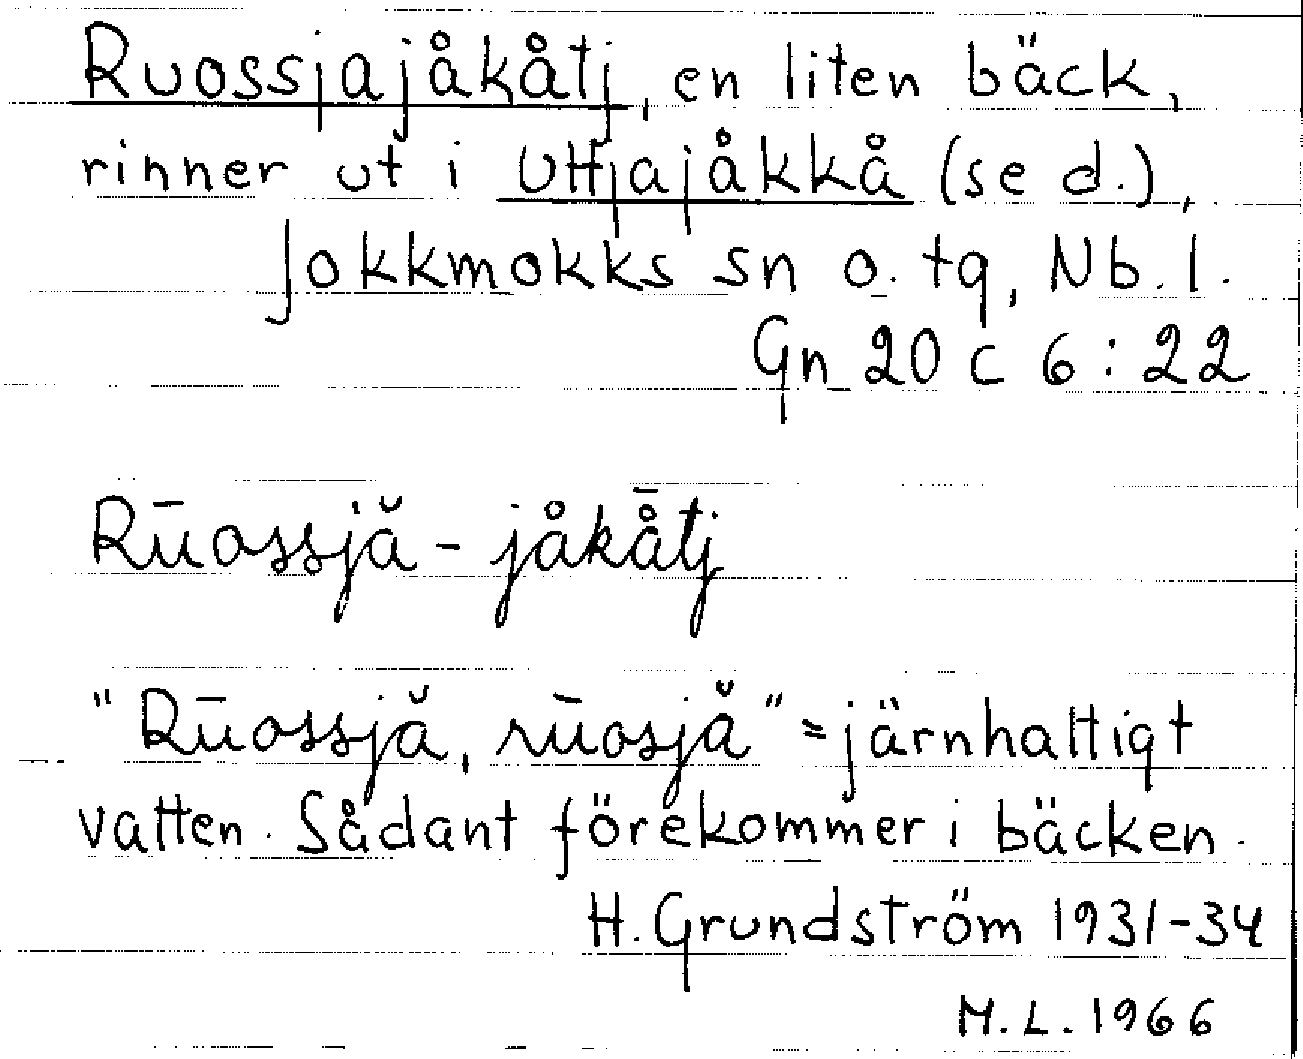 Ruossjajåkåtj, en liten bäck,
rinner ut i Uttjajåkkå (se d.),
Jokkmokks sn o. tg, Nb. l.
Gn 20 c 6:22
Rūossjă - jåkå̄tj
"Rūossjă, rūosjă" = järnhaltigt
vatten. Sådant förekommer i bäcken.
H. Grundström 1931-34
M.L. 1966